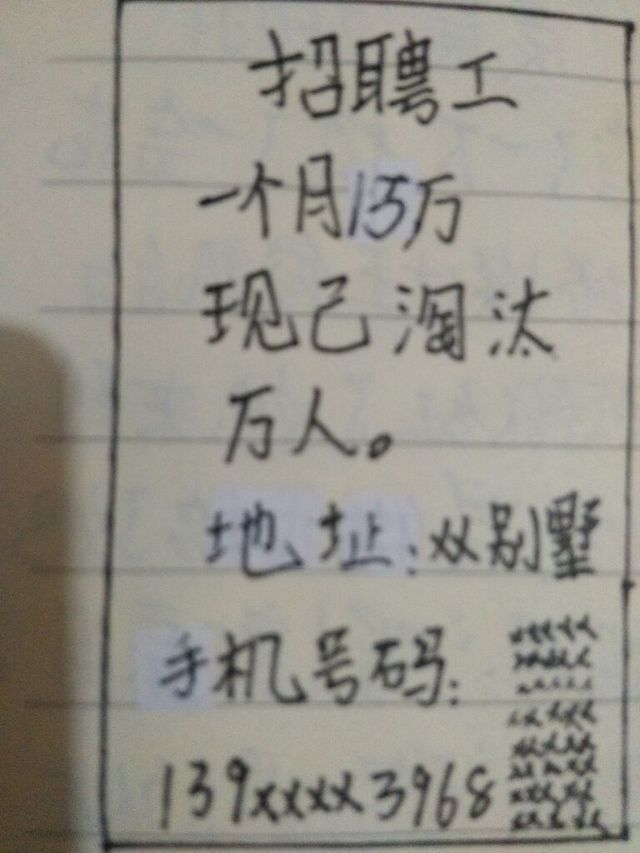 招聘工
一个月15万
现己淘汰
万人。
地址:xx别墅
手机号码:
139xxxx3968